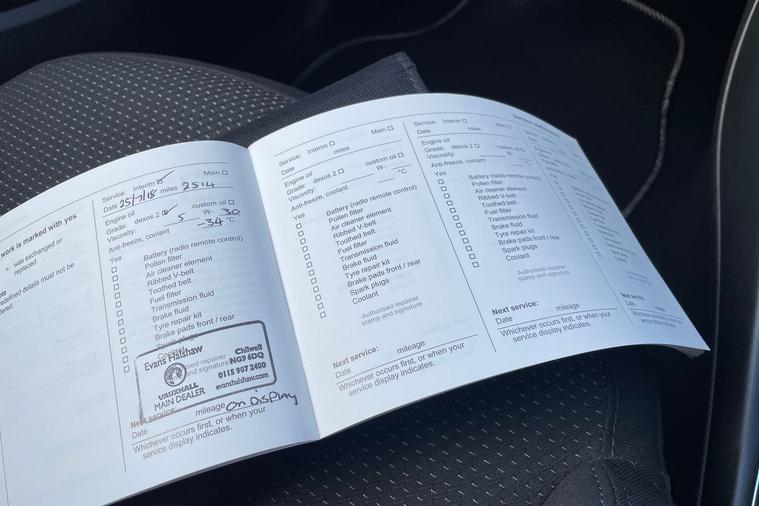 work is marked with yes
was exchanged or
replaced
edefined details must not be
Service: Interim ✓ Main
Date 25/7/18 miles 2514
Engine oil
Grade: dexos 2 ✓ custom oil
Viscosity: 5 W- 30
Anti-freeze, coolant -34 °C
Yes
Battery (radio remote control)
Pollen filter
Air cleaner element
Ribbed V-belt
Toothed belt
Fuel filter
Transmission fluid
Brake fluid
Tyre repair kit
Brake pads front / rear
Spark plugs
Coolant
Evans Halshaw
Chilwell
NG9 6DQ
0115 907 2400
evanshalshaw.com
VAUXHALL
MAIN DEALER
sed repairer
and signature
Next service:
mileage On Display
Date
Whichever occurs first, or when your
service display indicates.
Service: Interim Main
Date miles
Engine oil
Grade: dexos 2 custom oil
Viscosity: W-
Anti-freeze, coolant °C
Yes
Battery (radio remote control)
Pollen filter
Air cleaner element
Ribbed V-belt
Toothed belt
Fuel filter
Transmission fluid
Brake fluid
Tyre repair kit
Brake pads front / rear
Spark plugs
Coolant
Authorised repairer
stamp and signature
Next service:
mileage
Date
Whichever occurs first, or when your
service display indicates.
Service: Interim Main
Date miles
Engine oil
Grade: dexos 2 custom oil
Viscosity: W-
Anti-freeze, coolant °C
Yes
Battery (radio remote control)
Pollen filter
Air cleaner element
Ribbed V-belt
Toothed belt
Fuel filter
Transmission fluid
Brake fluid
Tyre repair kit
Brake pads front / rear
Spark plugs
Coolant
Authorised repairer
stamp and signature
Next service:
mileage
Date
Whichever occurs first, or when your
service display indicates.
Next service:
Date